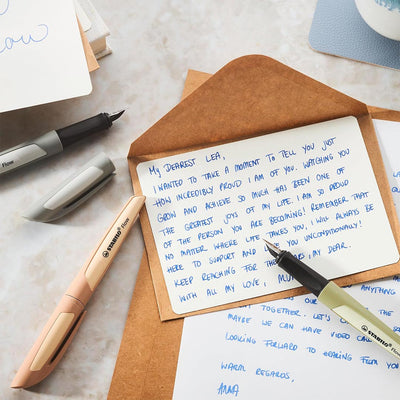 ow
Flow
STABILO Flow
My Dearest Lea,
I wanted to take a moment to tell you just
how incredibly proud I am of you. Watching you
grow and achieve so much has been one of
the greatest joys of my life. I am so proud
of the person you are becoming! Remember that
no matter where life takes you, I will always be
here to support and you unconditionally!
Keep reaching for the stars my dear.
With all my love, Mum
STABILO Flow
anything
together. Let's
maybe we can have video call
Looking forward to hearing from you
Warm regards,
Anna